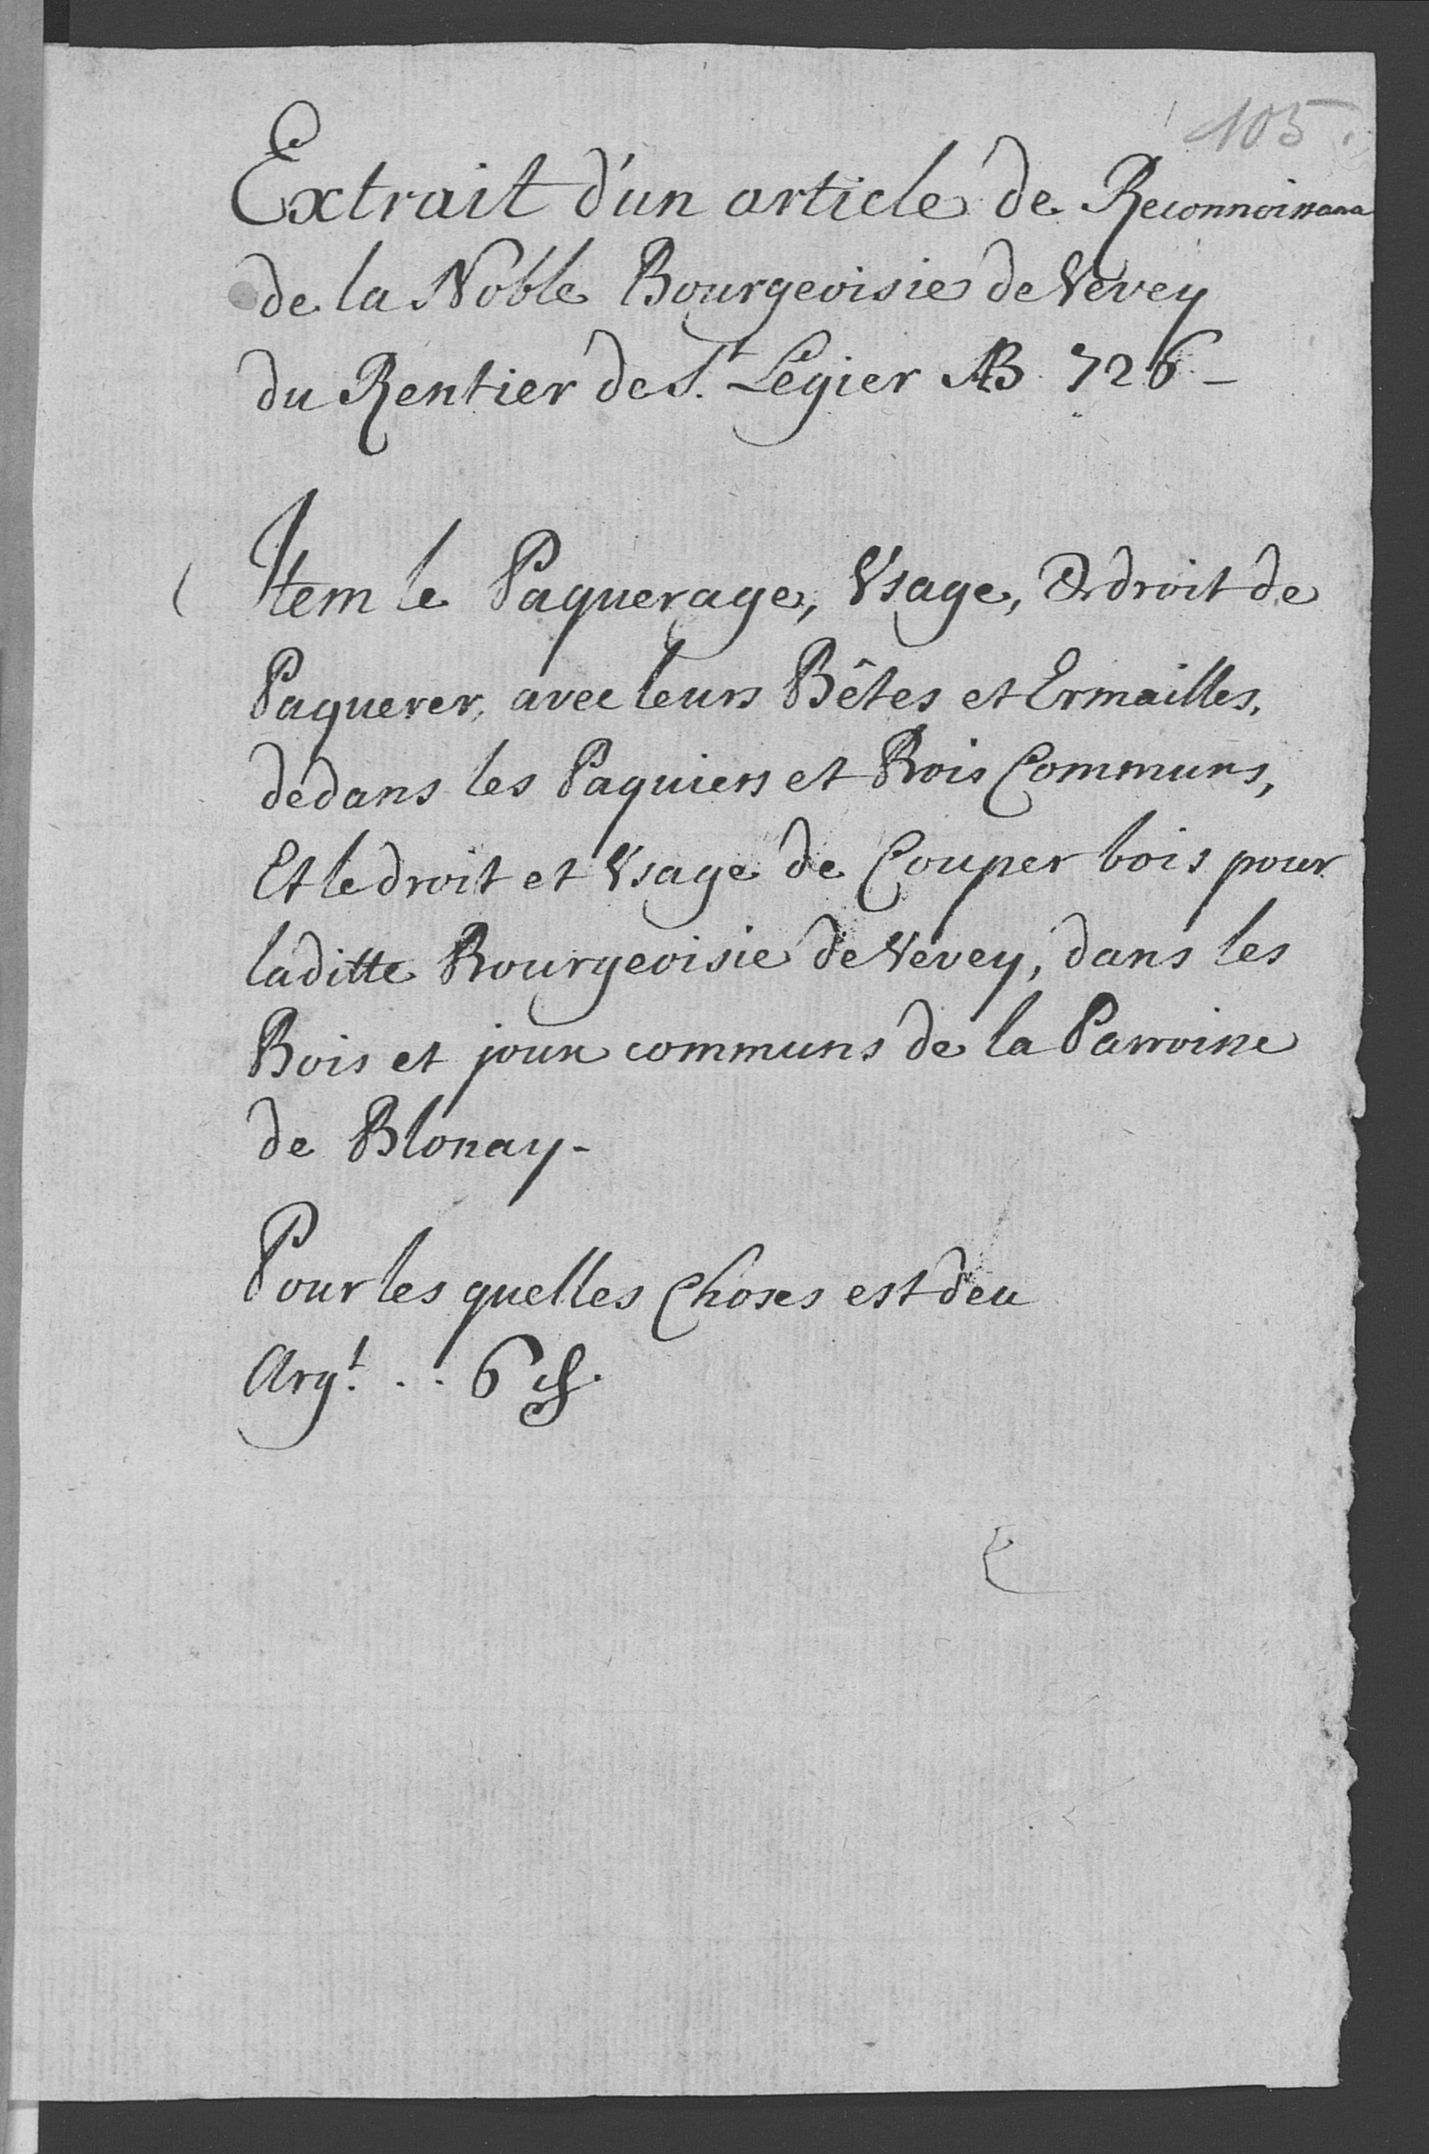 105.
Extrait d'un article de Reconnoissance
de la Noble Bourgeoisie de Vevey
du Rentier de St. Légier AB 726 -
Item le Paquerage, Usage, & droit de
Paquerer, avec leurs Bêtes et Ermailles,
dedans les Paquiers et Bois Communs,
Et le droit et Usage de Couper bois pour
laditte Bourgeoisie de Vevey, dans les
Bois et joux communs de la Parroisse
de Blonay -
Pour les quelles Choses est deu
Argt. . . 6